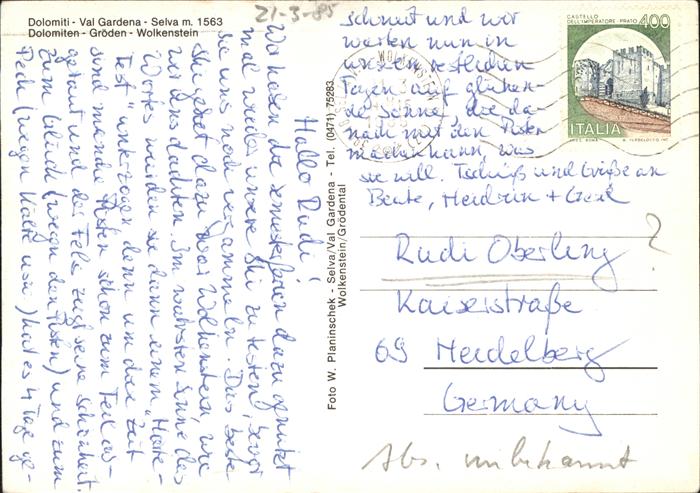 Dolomiti - Val Gardena - Selva m. 1563
Dolomiten - Gröden - Wolkenstein
21-3-85
Hallo Rudi!
Wir haben die Semesterferien dazu genutzt
mal wieder unsere Ski zu testen, bevor
sie uns noch vergammeln. Das beste
Skigebiet dazu war Wolkenstein, wie
wir uns dachten. Im wahrsten Sinne des
Wortes wurden sie dann einem "Härte-
test" unterzogen denn um die Zeit
sind manche Pisten schon zum Teil as-
getaut und der Fels zeigt seine Schönheit.
Zum Glück (wegen den Pisten) und zum
Pech (wegen Kälte usw.) hat es 4 Tage ge-
schneit und wir
warten nun in
unseren restlichen
Tagen auf glühen-
de Sonne, die da-
nach mit den Pisten
machen kann, was
sie will. Tschüß und Grüße an
Beate, Heidrun + Gerd
Foto W. Planinschek - Selva/Val Gardena - Tel. (0471) 75283
Wolkenstein/Grödental
CASTELLO
DELL'IMPERATORE PRATO
400
ITALIA
Rudi Oberling ?
Kaiserstraße
69 Heidelberg
Germany
Abs. unbekannt